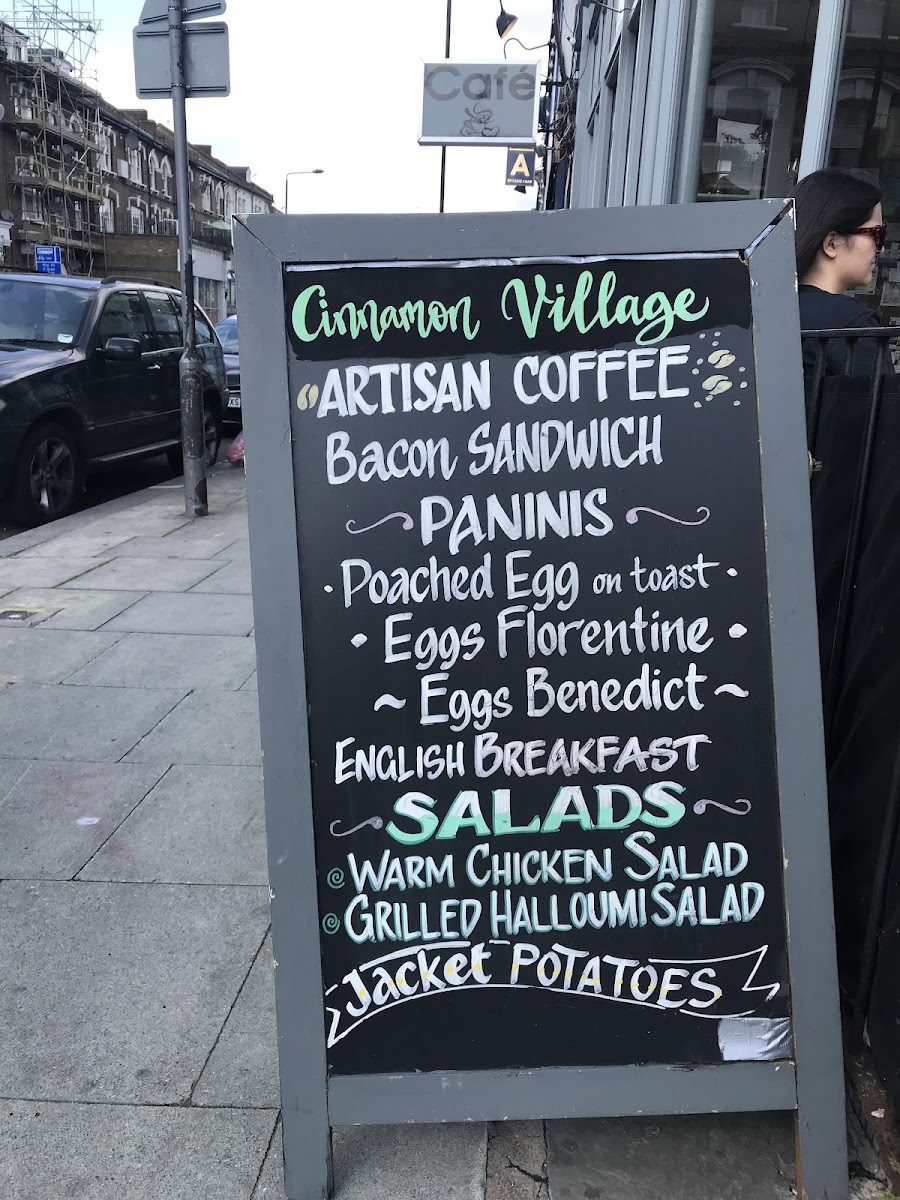 Café
A
Cinnamon Village
ARTISAN COFFEE
Bacon SANDWICH
PANINIS
· Poached Egg on toast ·
• Eggs Florentine •
~ Eggs Benedict ~
ENGLISH BREAKFAST
SALADS
WARM CHICKEN SALAD
GRILLED HALLOUMI SALAD
Jacket POTATOES